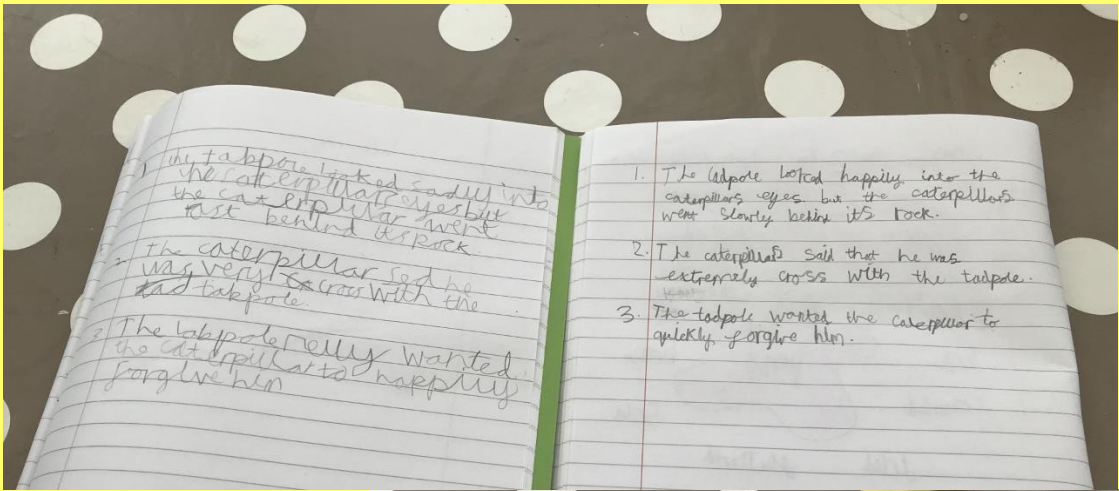 1) the tabpole looked sadly into
the caterpillars eyes but
the caterpillar went
fast behind its rock.
2. The caterpillar sed he
was very cross with the
tabpole.
3. The tabpole relly wanted
the caterpillar to happily
forgive him
1. The tadpole looked happily into the
caterpillars eyes but the caterpillars
went slowly behind its rock.
2. The caterpillars said that he was
extremely cross with the tadpole.
3. The tadpole wanted the caterpillar to
quickly forgive him.